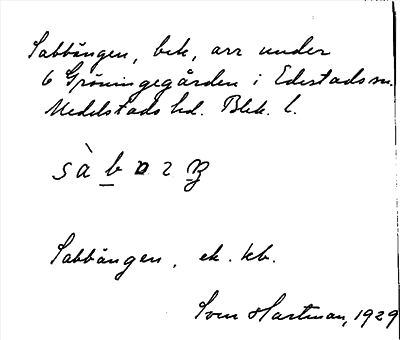 Sabbången, bek, arr under
6 Gröningegården i Edestads sn.
Medelstads hd. Blek. l.
Sabbången, ek. kb.
Sven Hartman, 1929